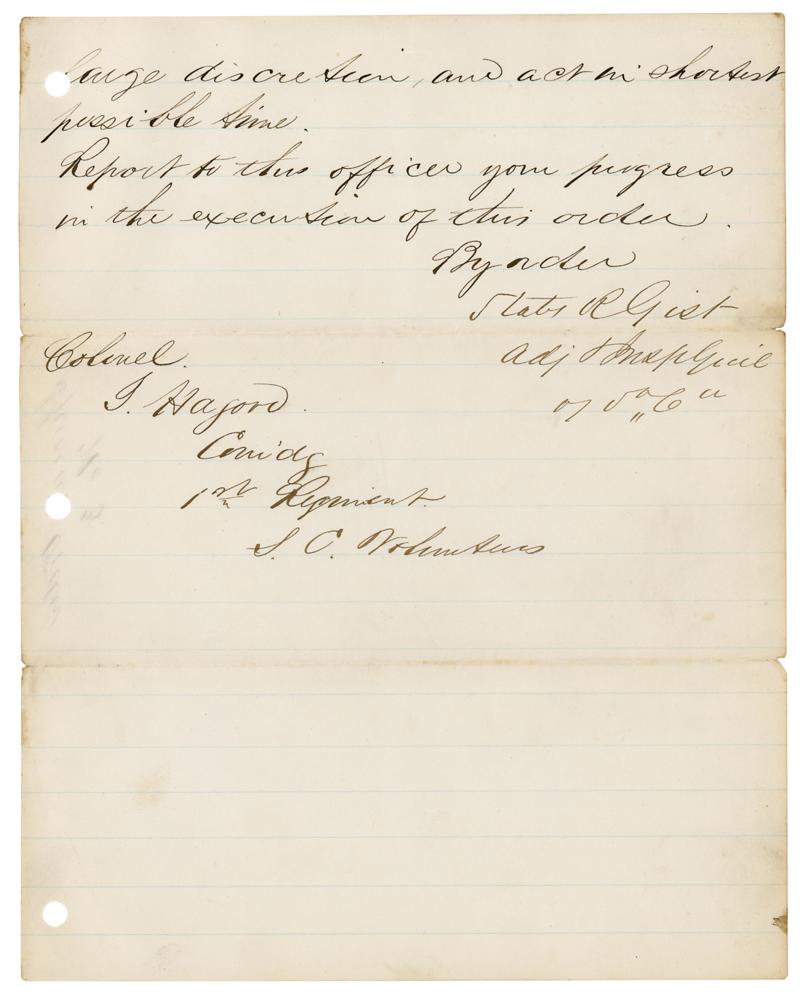 large discretion, and act in shortest
possible time.
Report to this officer your progress
in the execution of this order.
By order
States R Gist
Adj & Insp Genl
of So "Ca"
Colonel.
J. Hagood.
Comdg
1st Regiment.
S. C. Volunteers